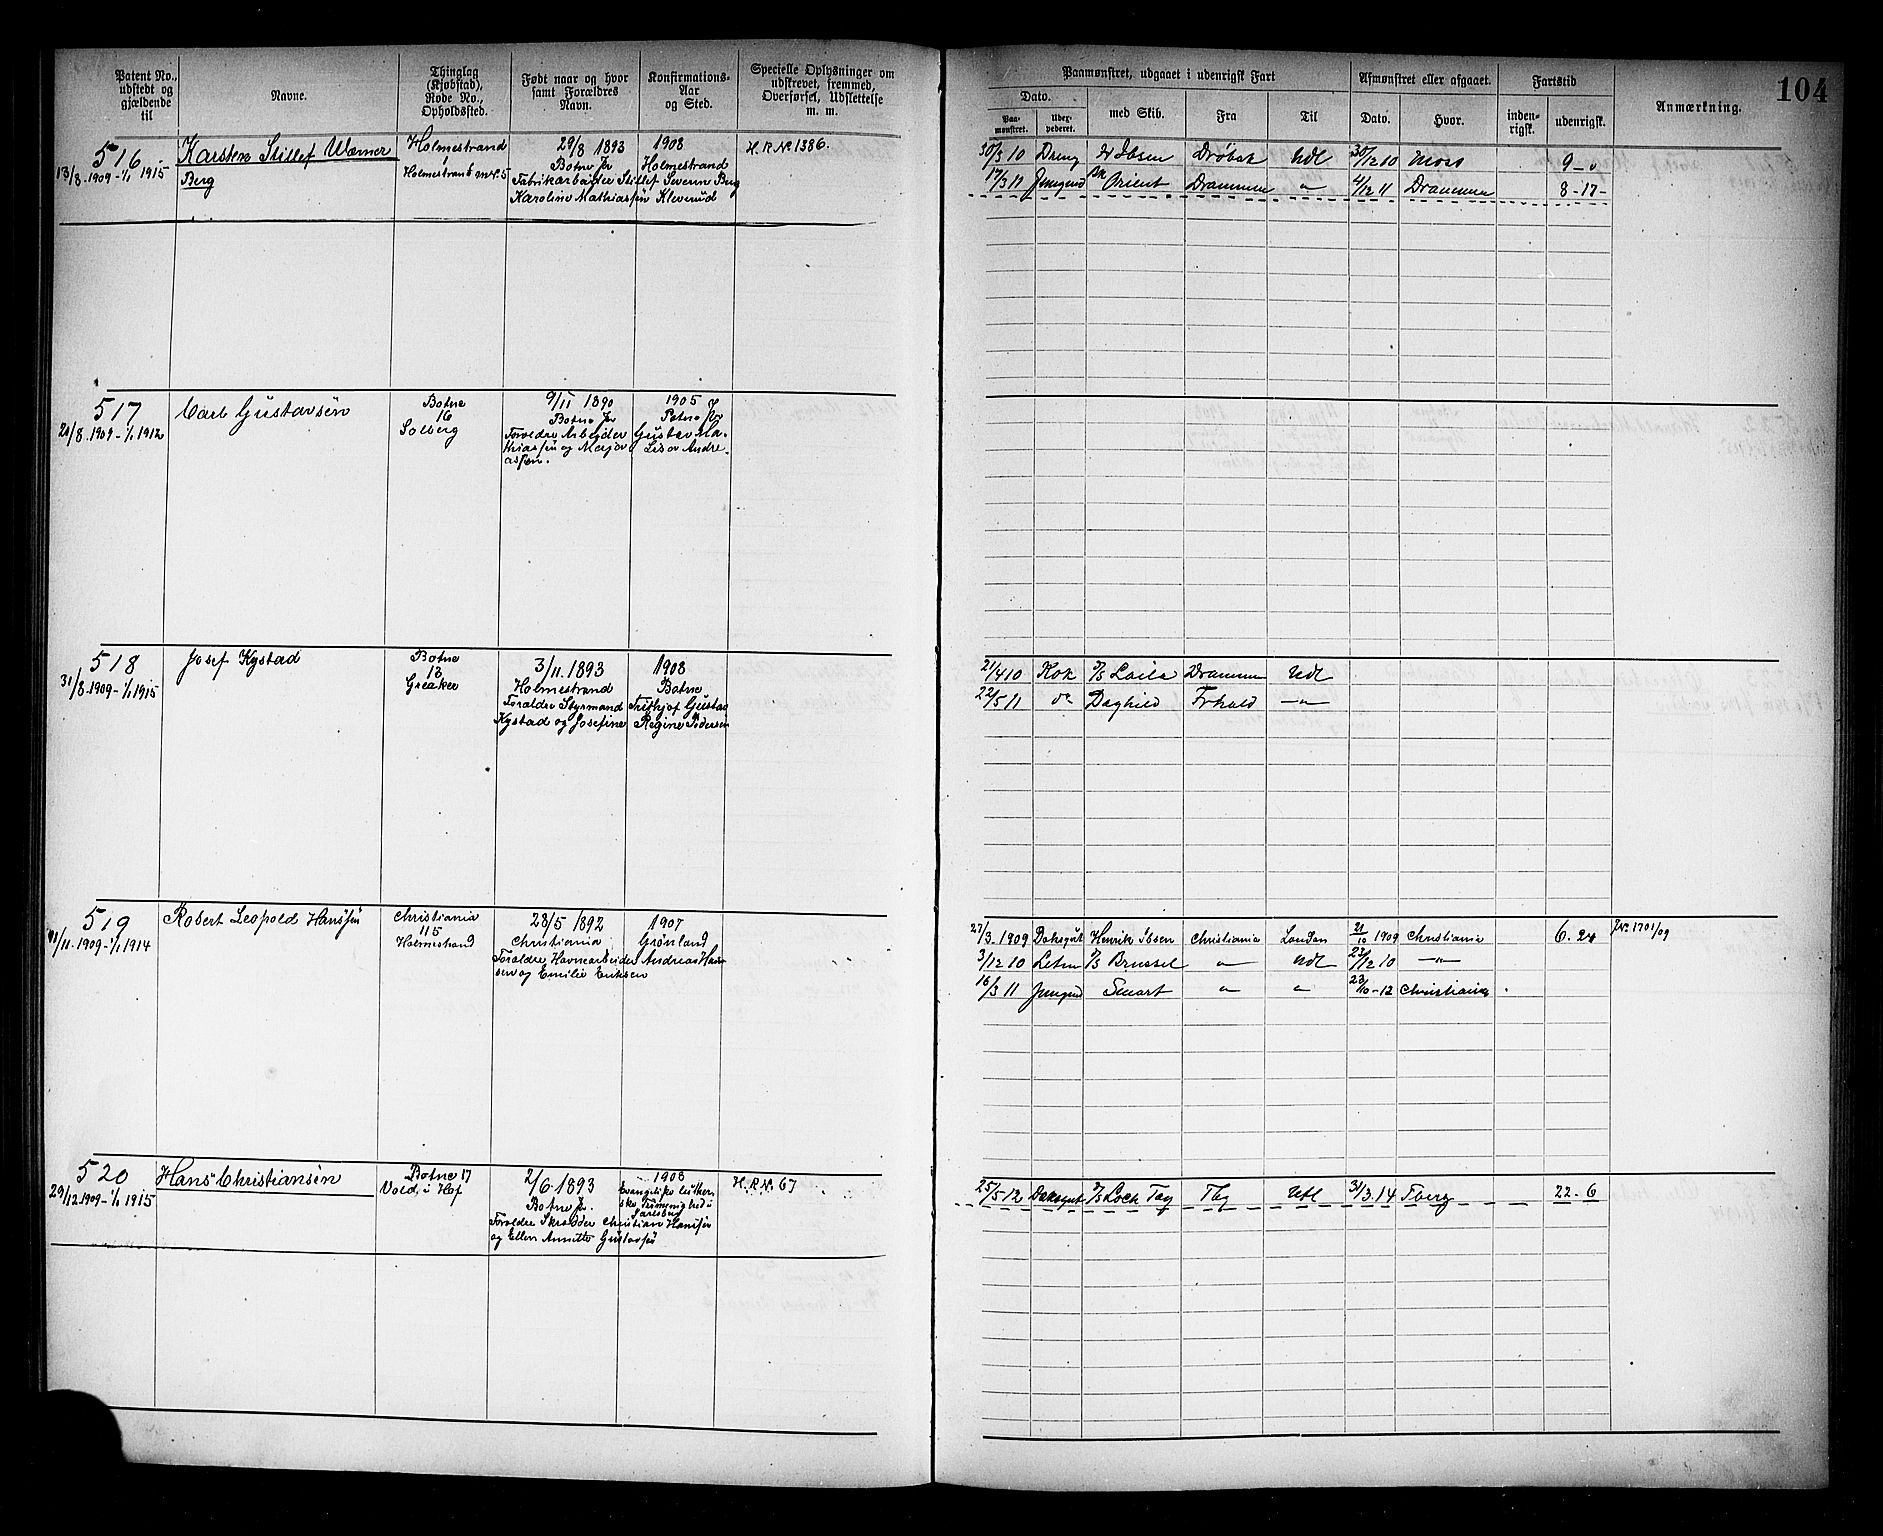 Patent No., udstedt og gjældende til
Navne.
Thinglag (Kjøbstad), Rode No., Opholdssted.
Født naar og hvor samt Forældres Navn.
Konfirmations-Aar og Sted.
Specielle Oplysninger om udstrevet, fremmed, Overførsel, Udslettelse m. m.
Paamønstret, udgaaet i udenrigsk Fart
Afmønstret eller afgaaet.
Fartstid
Anmærkning.
104
Dato.
Paa-mønstret.
med Skib.
Fra
Til
Dato.
Hvor.
inden-rigsk.
udenrigsk.
516
13/8.1909-1/1 1915
Karsten Stillef Werner
Berg
Holmestrand
Holmestrand
29/8 1893
Botne Js
Fabrikarbeider Stillef Severin Berg
Karoline Mathiassen Kleverud
1908
Holmestrand
H.R.No 1386.
30/3 10 Dreng Ibsen Drøbak Udl 30/12 10 Moss 9-0
17/3 11 Jungmd Orient Drammen " 4/12 11 Drammen 8-17-
517
20/8.1909-1/1 1912
Carl Gustavsen
Botne
16
Solberg
9/11 1890
Botne Js
Foreldre Arbeider Gustav Ma-
thiassen og Lisa Andre-
assen.
1905
Botne
518
31/8.1909-1/1 1915
Josef Kystad
Botne
13
Greaker
3/11.1893
Holmestrand
Foreldre Styrmand Frithjof Gustav
Kystad og Josefine Regine Pedersen
1908
Botne
21/4 10 Kok D/S Laila Drammen Udl
22/5 11 do Daghild Frhald —"—
519
11/11.1909-1/1 1914
Robert Leopold Hanssen
Christiania
115
Holmestrand
28/5 1892
Christiania
Foreldre Havnearbeider Andreas Han-
sen og Emilie Eriksen
1907
Grønland
27/3.1909 Daksgut Henrik Ibsen Christiania London 21/10 1909 Christiania 6.24 JNo. 1701/09
3/12 10 Letm D/S Brussel " Udl 23/12 10 —"—
16/3 11 Jungmd Smart " " 23/10-12 Christiania
520
29/12.1909-1/1 1915
Hans Christiansen
Botne 17
Vold i Hof
2/6.1893
Botne Js.
Foreldre Skrædder Christian Hansen
og Ellen Annette Gustavsen
1908
Evangelisk luthersk
Frimenighed i
Jarlsberg
H.R.No. 67
25/5 12 Daksgut D/S Lock Tay Tbg Utl 31/3.14 Tberg 22-6